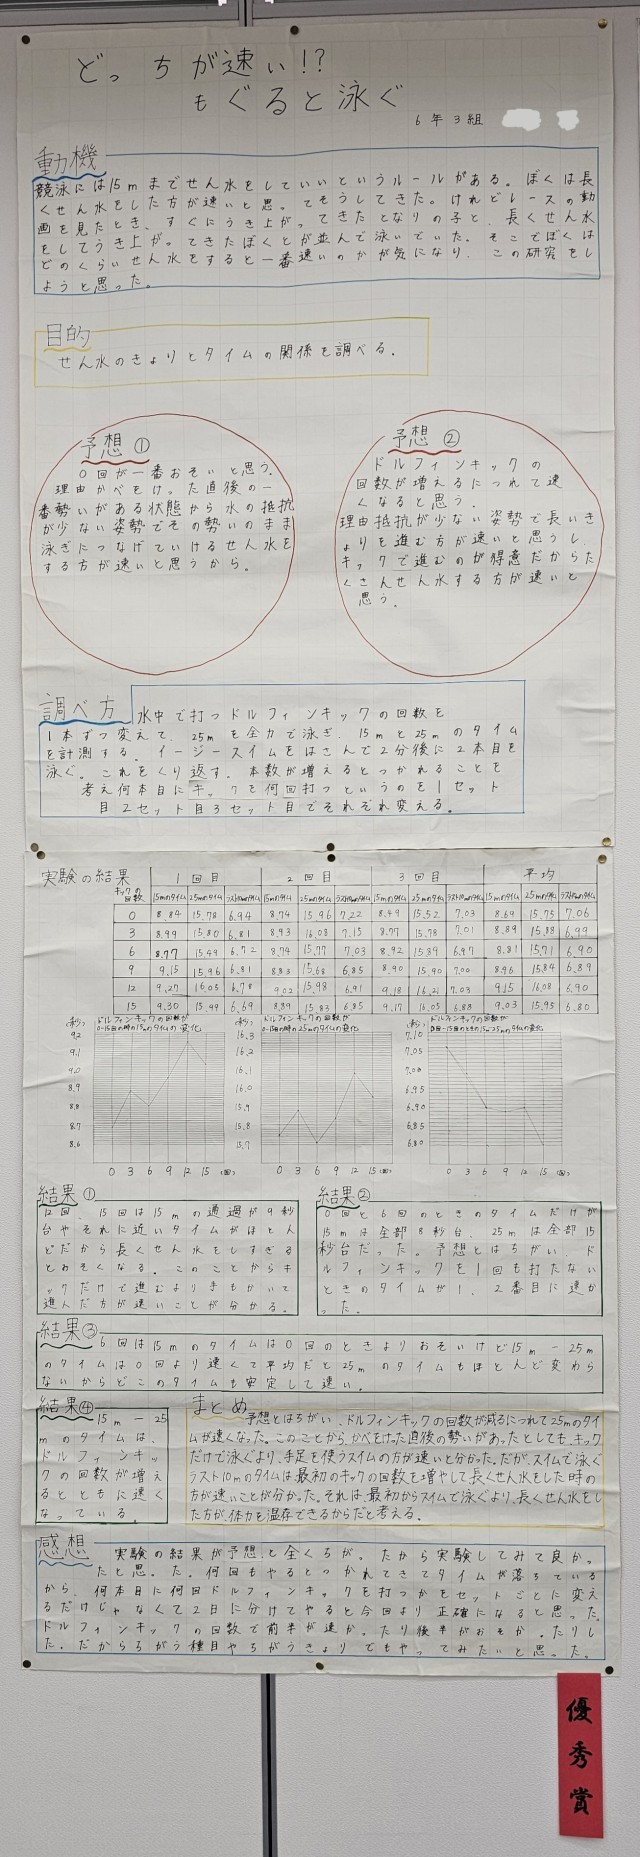 どっちが速い!?
もぐると泳ぐ
6年3組
動機
競泳には15mまでせん水をしていいというルールがある。ぼくは長
くせん水をした方が速いと思ってそうしてきた。けれどレースの動
画を見たとき、すぐにうき上がってきたとなりの子と、長くせん水
をしてうき上がってきたぼくとが並んで泳いでいた。そこでぼくは
どのくらいせん水をすると一番速いのかが気になり、この研究をし
ようと思った。
目的
せん水のきょりとタイムの関係を調べる。
予想①
0回が一番おそいと思う。
理由かべをけった直後の一
番勢いがある状態から水の抵抗
が少ない姿勢でその勢いのまま
泳ぎにつなげていけるせん水を
する方が速いと思うから。
予想②
ドルフィンキックの
回数が増えるにつれて速
くなると思う。
理由抵抗が少ない姿勢で長いき
ょりを進む方が速いと思うし、
キックで進むのが得意だからた
くさんせん水する方が速いと
思う。
調べ方
水中で打つドルフィンキックの回数を
1本ずつ変えて、25mを全力で泳ぎ、15mと25mのタイム
を計測する。イージースイムをはさんで2分後に2本目を
泳ぐ。これをくり返す。本数が増えるとつかれることを
考え何本目にキックを何回打つというのを1セット
目2セット目3セット目でそれぞれ変える。
実験の結果 1回目 2回目 3回目 平均
キックの回数 15mのタイム 25mのタイム ラスト10mのタイム 15mのタイム 25mのタイム ラスト10mのタイム 15mのタイム 25mのタイム ラスト10mのタイム 15mのタイム 25mのタイム ラスト10mのタイム
0 8.84 15.78 6.94 8.74 15.96 7.22 8.49 15.52 7.03 8.69 15.75 7.06
3 8.99 15.80 6.81 8.93 16.08 7.15 8.77 15.78 7.01 8.89 15.88 6.99
6 8.77 15.49 6.72 8.74 15.77 7.03 8.92 15.89 6.97 8.81 15.71 6.90
9 9.15 15.96 6.81 8.83 15.68 6.85 8.90 15.90 7.00 8.96 15.84 6.89
12 9.27 16.05 6.78 9.02 15.98 6.91 9.18 16.21 7.03 9.15 16.08 6.90
15 9.30 15.99 6.69 8.89 15.83 6.85 9.17 16.05 6.88 9.03 15.95 6.80
ドルフィンキックの回数が
0~15回の時の15mのタイムの変化
(秒)
9.2
9.1
9.0
8.9
8.8
8.7
8.6
0 3 6 9 12 15 (回)
ドルフィンキックの回数が
0~15回の時の25mのタイムの変化
(秒)
16.3
16.2
16.1
16.0
15.9
15.8
15.7
0 3 6 9 12 15 (回)
ドルフィンキックの回数が
(秒)
7.10
7.05
7.00
6.95
6.90
6.85
6.80
0 3 6 9 12 15 (回)
結果①
12回、15回は15mの通過が9秒
台やそれに近いタイムがほとん
どだから長くせん水をしすぎる
とおそくなる。このことからキ
ックだけで進むより手もかいて
進んだ方が速いことが分かる。
結果②
0回と6回のときのタイムだけが
15mは全部8秒台、25mは全部15
秒台だった。予想とはちがい、ド
ルフィンキックを1回も打たない
ときのタイムが1、2番目に速か
った。
結果③
6回は15mのタイムは0回のときよりおそいけど15m-25m
のタイムは0回より速くて平均だと25mのタイムもほとんど変わら
ないからどこのタイムも安定して速い。
結果④
15m-25
mのタイムは、
ドルフィンキッ
クの回数が増え
るとともに速く
なっている。
まとめ
予想とはちがい、ドルフィンキックの回数が減るにつれて25mのタイ
ムが速くなった。このことから、かべをけった直後の勢いがあったとしても、キック
だけで泳ぐより、手足を使うスイムの方が速いと分かった。だが、スイムで泳ぐ
ラスト10mのタイムは最初のキックの回数を増やして長くせん水をした時の
方が速いことが分かった。それは、最初からスイムで泳ぐより、長くせん水をし
た方が、体力を温存できるからだと考える。
感想
実験の結果が予想と全くちがったから実験してみて良かっ
たと思った。何回もやるとつかれてきてタイムが落ちている
から、何本目に何回ドルフィンキックを打つかをセットごとに変え
るだけじゃなくて2日に分けてやると今回より正確になると思った。
ドルフィンキックの回数で前半が速かったり後半がおそかったりし
た。だからちがう種目やちがうきょりでもやってみたいと思った。
優秀賞